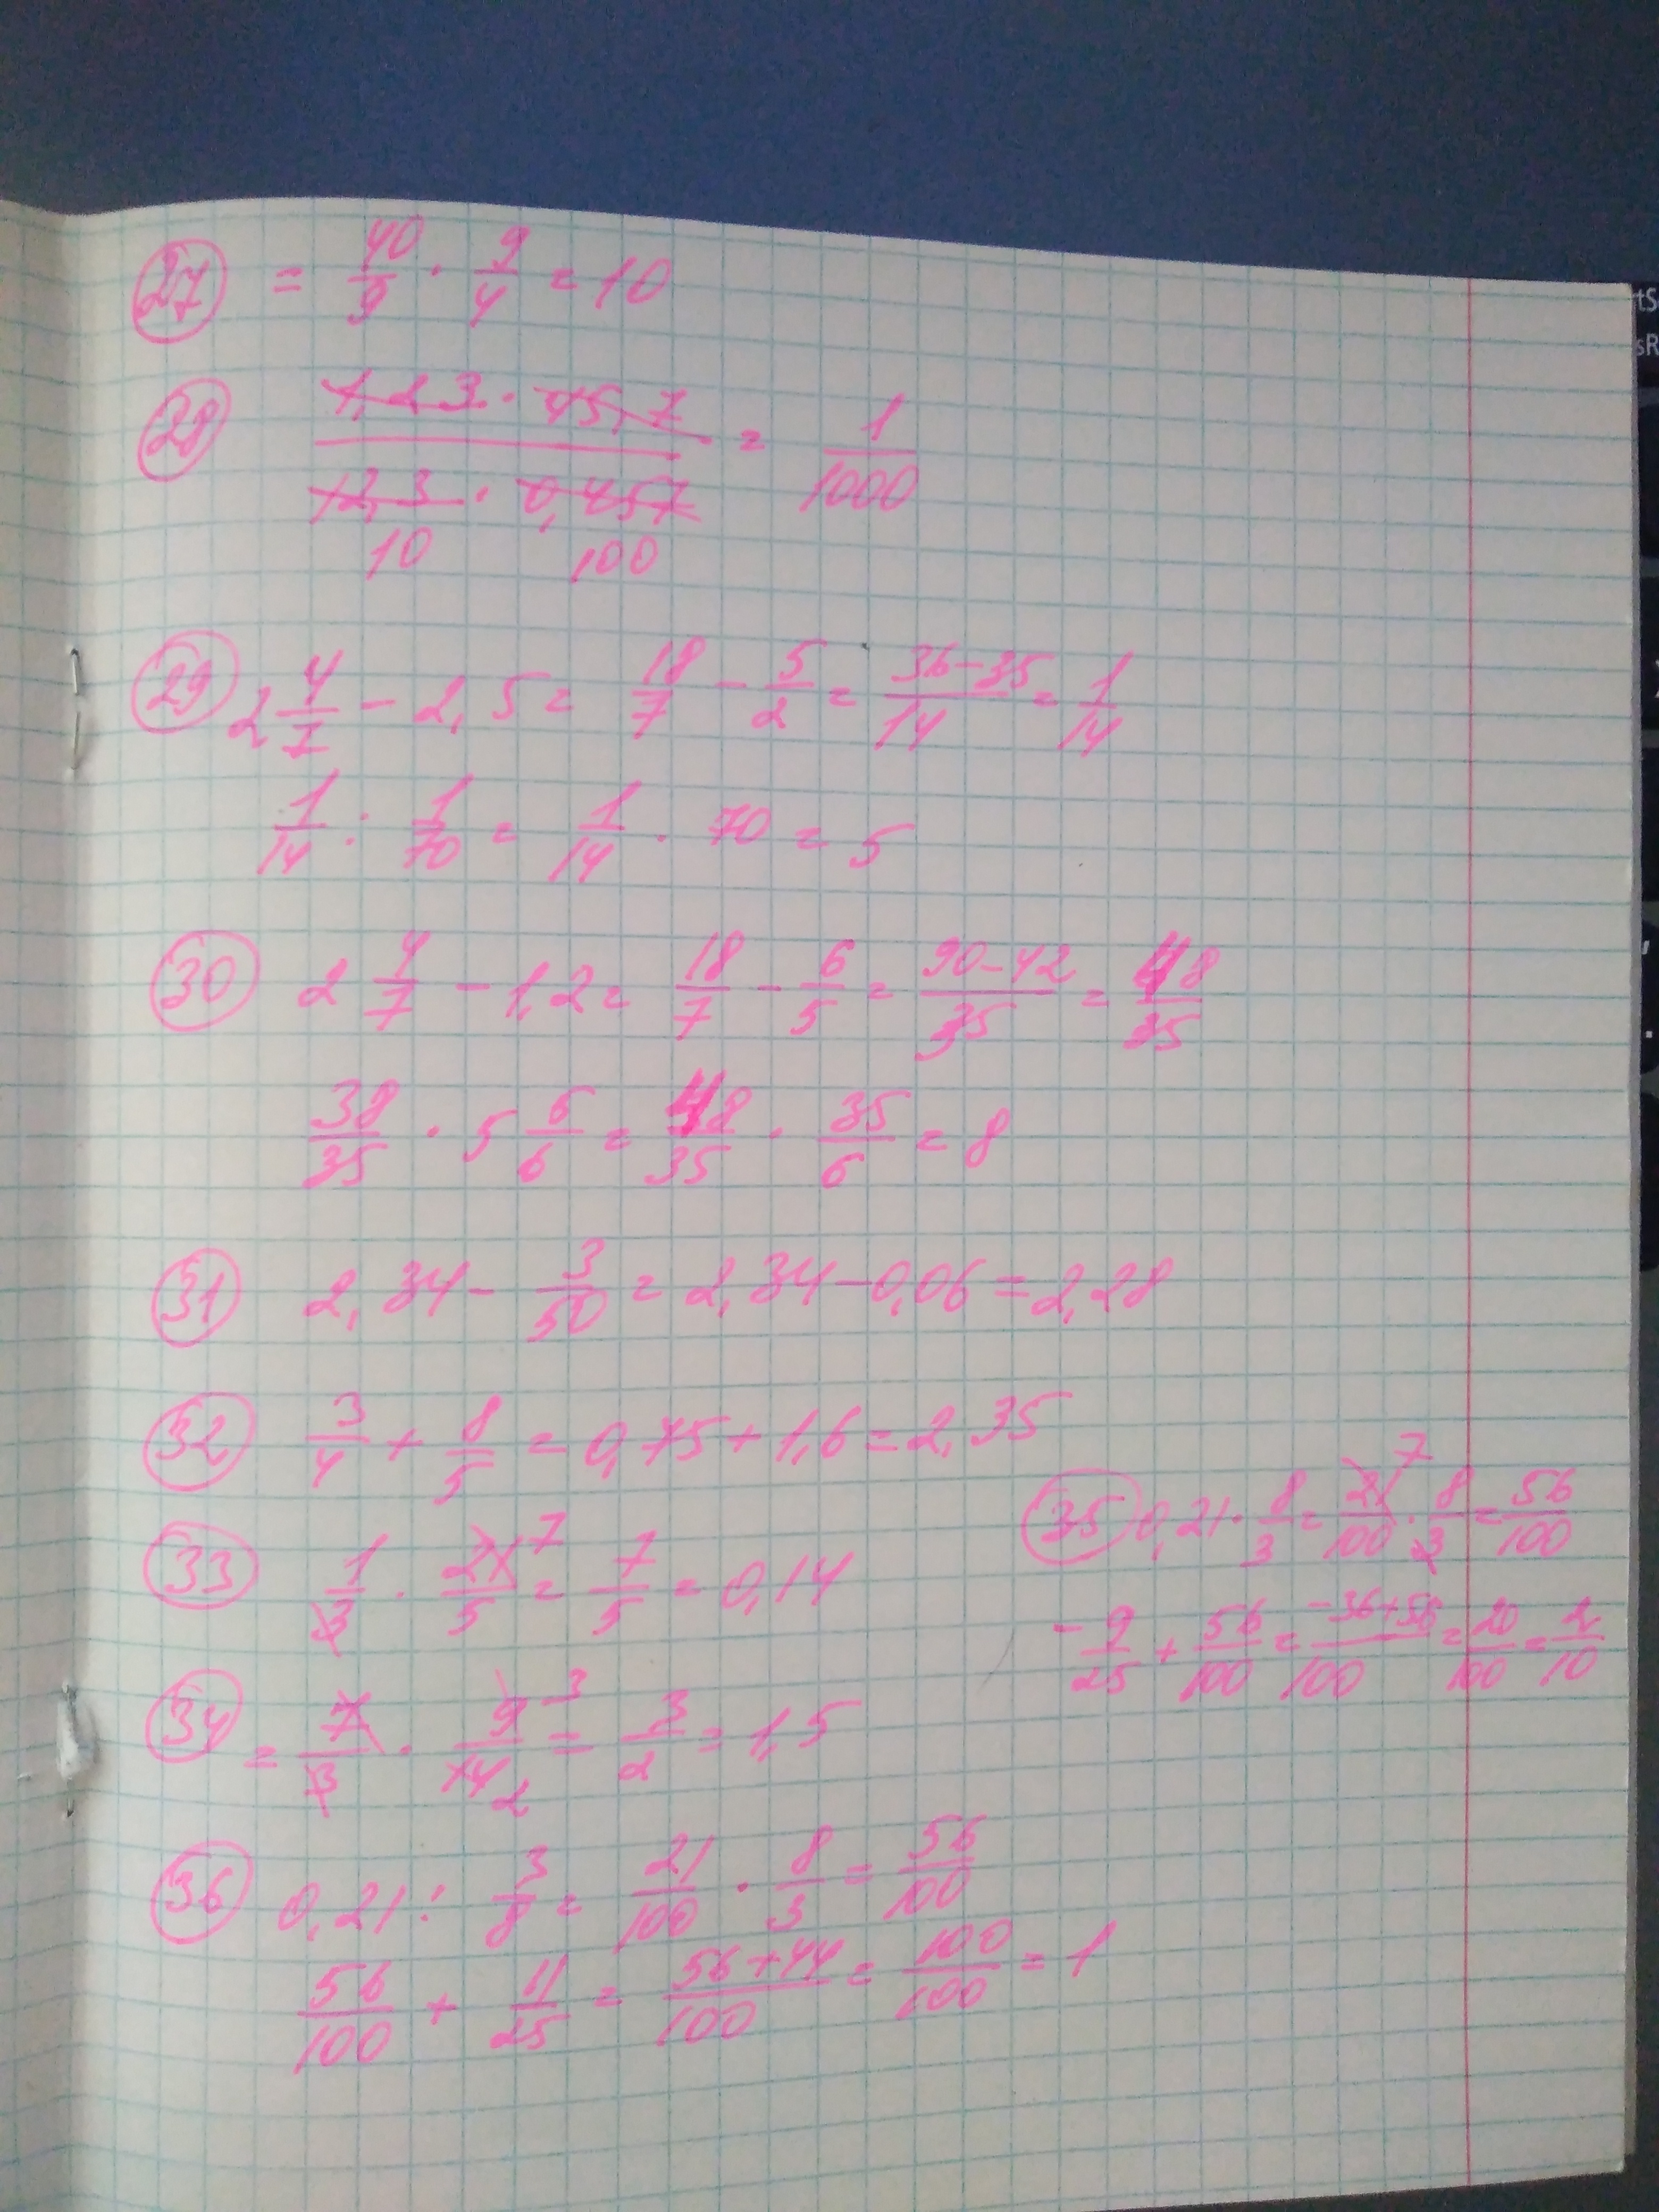 27 = 40/9 · 9/4 = 10
28 (1,23 · 45,7)/(12,3 · 0,457) = 1/1000
10 100
29 2 4/7 - 2,5 = 18/7 - 5/2 = (36-35)/14 = 1/14
1/14 : 1/70 = 1/14 · 70 = 5
30 2 4/7 - 1,2 = 18/7 - 6/5 = (90-42)/35 = 48/35
38/35 · 5 5/6 = 48/35 · 35/6 = 8
31 2,34 - 3/50 = 2,34 - 0,06 = 2,28
32 3/4 + 8/5 = 0,75 + 1,6 = 2,35
33 1/3 · 21/5 7 = 7/5 = 0,14
34 = 7/3 · 9/14 3 2 = 3/2 = 1,5
35 0,21 · 8/3 = 21/100 7 · 8/3 = 56/100
-9/25 + 56/100 = (-36+56)/100 = 20/100 = 2/10
36 0,21 : 3/8 = 21/100 · 8/3 = 56/100
56/100 + 11/25 = (56+44)/100 = 100/100 = 1